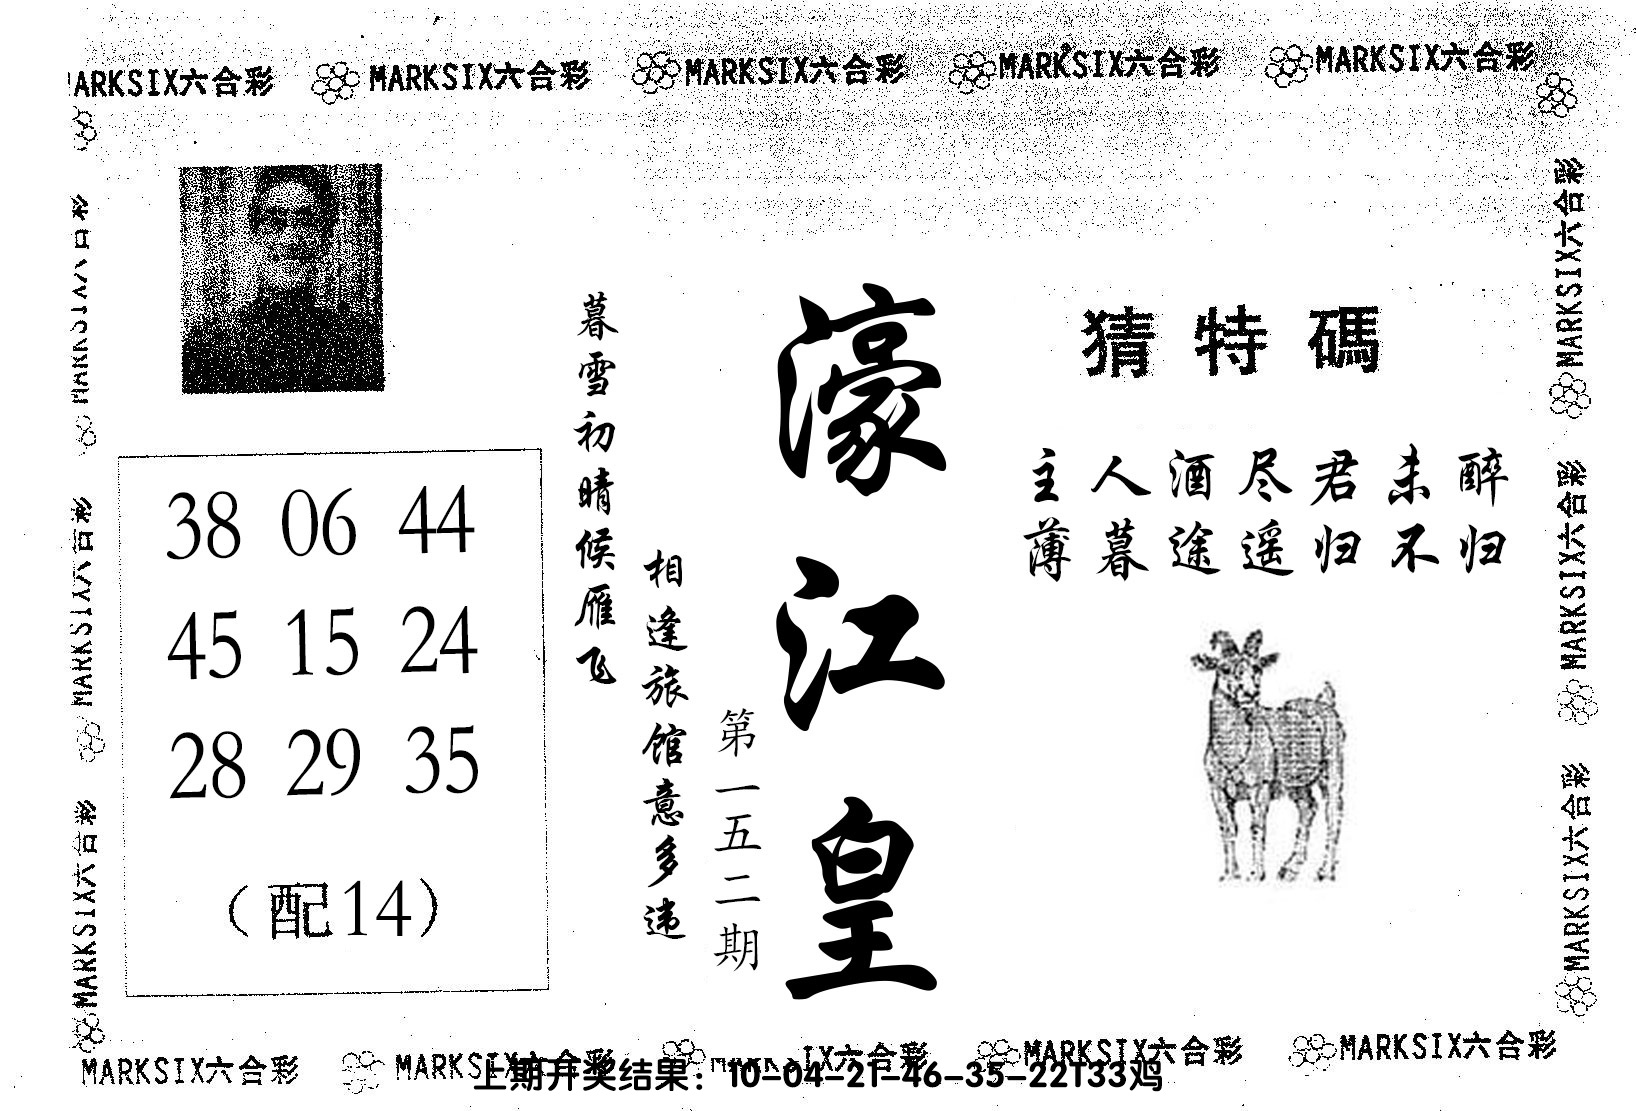 MARKSIX六合彩 MARKSIX六合彩 MARKSIX六合彩 MARKSIX六合彩 MARKSIX六合彩
猜特碼
主人酒尽君未醉
薄暮途遥归不归
濠江皇
第一五二期
暮雪初晴候雁飞
相逢旅馆意多违
38 06 44
45 15 24
28 29 35
（配14）
MARKSIX六合彩
MARKSIX六合彩
MARKSIX六合彩
MARKSIX六合彩
MARKSIX六合彩
MARKSIX六合彩
MARKSIX六合彩 MARKSIX六合彩 MARKSIX六合彩 MARKSIX六合彩 MARKSIX六合彩
上期开奖结果：10-04-21-46-35-22T33鸡